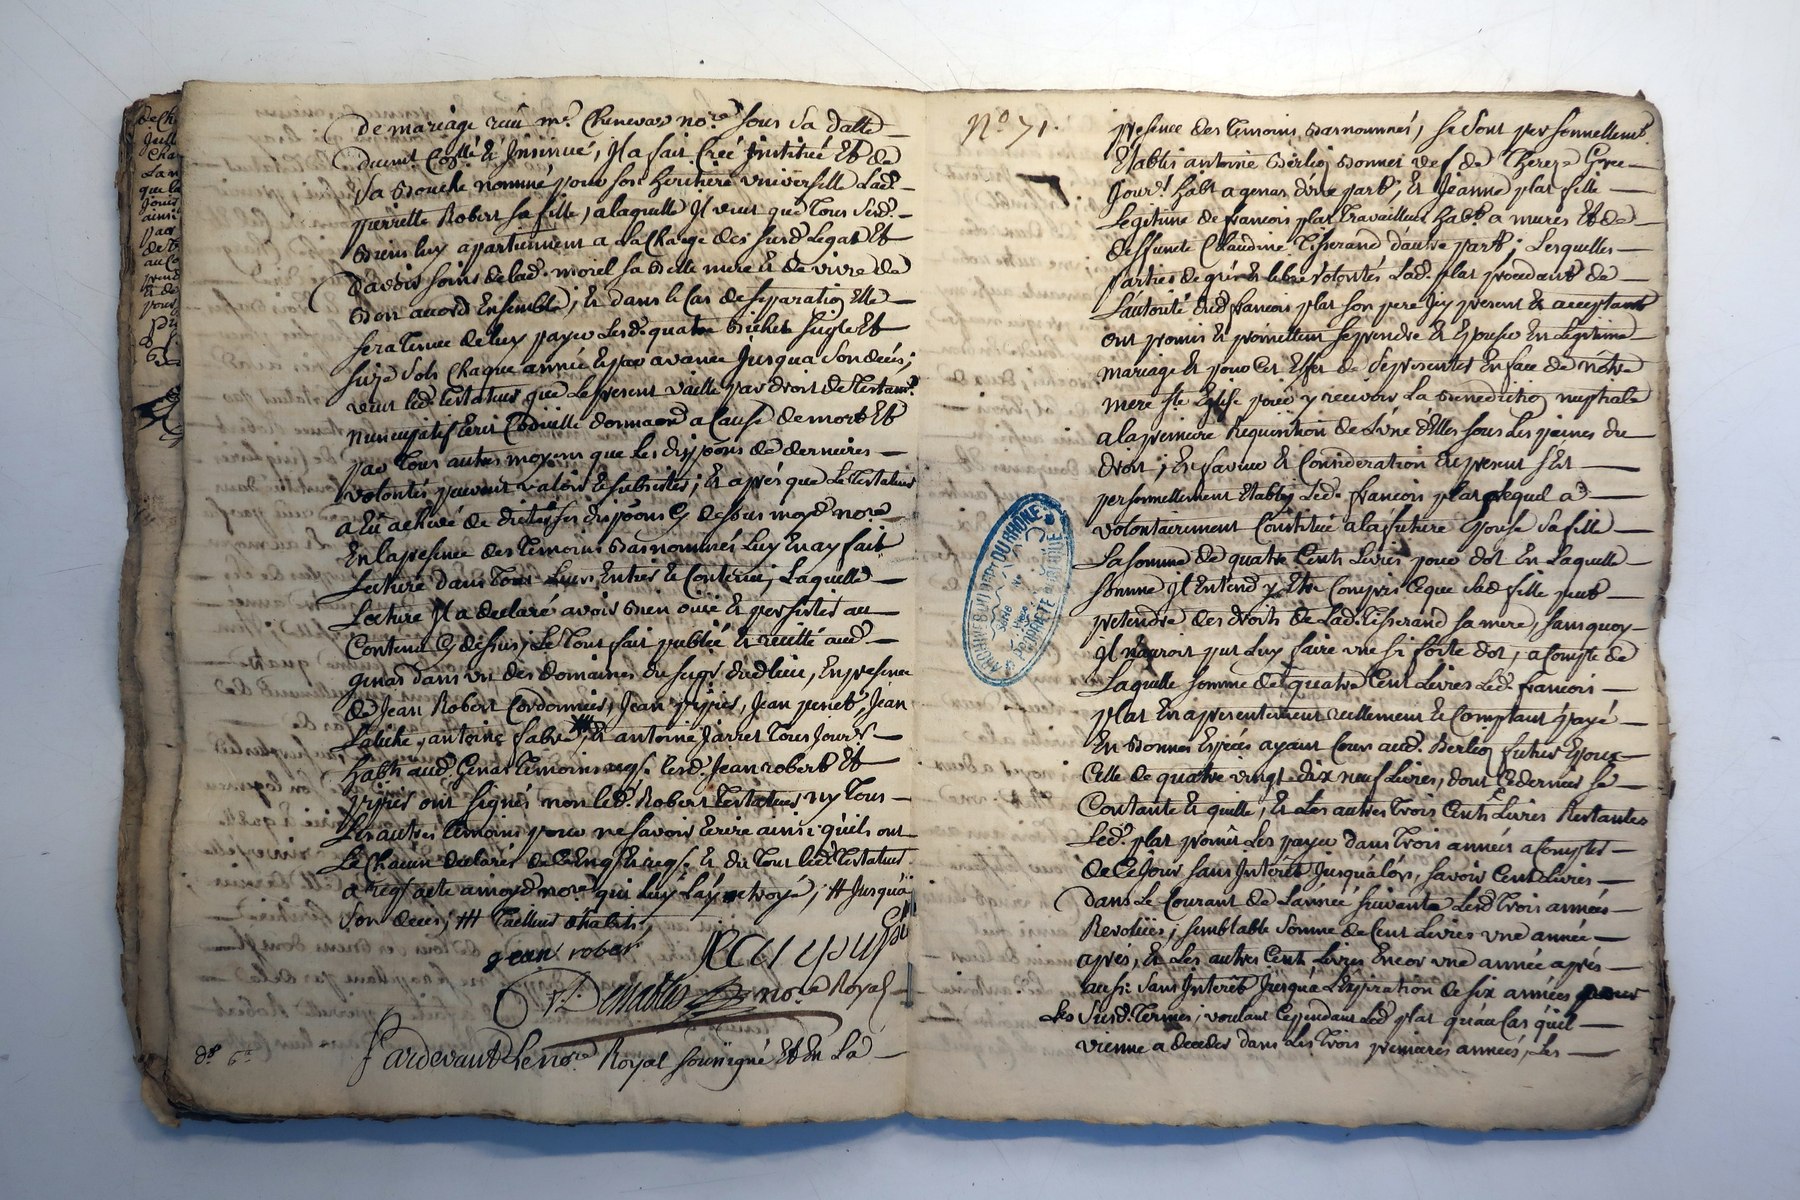 de mariage reçu me. Chenevas nore sous sa datte
duemt Collé et Insinué, Il a fait Creé Institué Et de
sa Bouche nommé pour son heritiere universelle Lade.
pierrette Robert sa fille, a laquelle Il veut que Tous sesd.
Biens luy appartiennent a La Charge des susd Legat Et
d'avoir soins de lad. morel sa Belle mere Et de vivre de
Bon accord Ensemble; Et dans le Cas de separation Elle
sera Tenue de luy payer Lesd. quatre Bichet seigle Et
seize sols Chaque année Et par avance Jusqua son decés;
veut led. testateur que Le present vaille par droit de Testamt.
nuncupatif Ecrit Codicille donnaon a Cause de mort Et
par Tous autres moyens que les dispons de dernieres
volontés peuvent valoir et subsister; Et aprés que Le Testateur
a Eu achevé de dicter ses disponns Cy dessus moyd. nore.
En la presence des Temoins Basnommés Luy En ay fait
Lecture dans Tout Leur Entier et Contenu; Laquelle
Lecture Il a declaré avoir Bien ouïe et persister au
Contenu Cy dessus, Le Tout fait publié et recitté aud.
genas dans un des domaines du sugr. dud lieu, En presence
de Jean Robert Cordonnier, Jean pipier, Jean penet, Jean
Labiche, antoine fabre, Et antoine Jarret Tous Jours.
habts aud. Genas Temoins reqs. lesd. Jean robert Et
pipier ont signés non led. Robert Testateur, ny Tous
Les autres Temoins pour ne savoir Ecrire ainsi qu'ils ont
Le Chacun declarés de Ce Enqs. Et reqs. Et du Tout led. Testateur
a reqs acte a moyd. nore. qui luy L'ay octroyé; # Jusqua
son deces; ## Tailleur d'habits,
jean rober
nore Royal
ds 6s
Pardevant Le nore. Royal soussigné Et En La
No 71.
presence des Temoins Basnommés, se sont personnellement
Etablis antoine Berlioz Bonnet vef de Thereze
Jourr. habt a genas d'une part; Et Jeanne plat fille
Legitime de francois plat Travailleur habt. a mures Et de
deffuncte Claudine Tisserand d'autre part; Lesquelles
parties de gré et libre volontés Lad. plat procedant de
L'autorité dud francois plat son pere Icy present Et acceptant
ont promis Et promettent se prendre Et Epouser En Legitime
mariage Et pour Cet Effet de se presenter En face de nôtre
mere ste Eglise pour y recevoir La Benediction nuptiale
a la premiere Requisition de L'une d'Elles sous Les peines du
droit; En faveur Et Consideration du present s'est
personnellement Etably Led. francois plat lequel a
volontairement Constitué a la future Epouse sa fille
La somme de quatre Cents Livres pour dot En Laquelle
somme Il Entend y Etre Compris Ce que lad fille peut
pretendre des droits de Lad. Tisserand sa mere, sans quoy
Il n'auroit put Luy faire une si forte dot, a Compte de
Laquelle somme de quatre Cent Livres Led. francois
plat En a presentement reellement et Comptant payé
En Bonnes Especes ayant Cour aud. Berlioz futur Epoux
Celle de quatre vingt dix neuf Livres, dont Ce dernier se
Contante Et quitte, Et Les autres Trois Cents Livres Restantes
Led. plat promet Les payer dans Trois années a Compter
de Ce Jour sans Interêt Jusqu'alors, savoir Cent Livres
dans Le Courant de L'année suivante Lesd Trois années
Revolües; semblable somme de Cent Livres une année
aprés, Et Les autres Cent Livres Encor une année aprés
aussi sans Interêt Jusqua L'Expiration de six années
Les susd. Termes, voulant Cependant Led. plat qu'au Cas qu'il
vienne a deceder dans Les Trois premieres années, Les
ARCHIVES DU DEPT DU RHONE
PROPRIETE PUBLIQUE